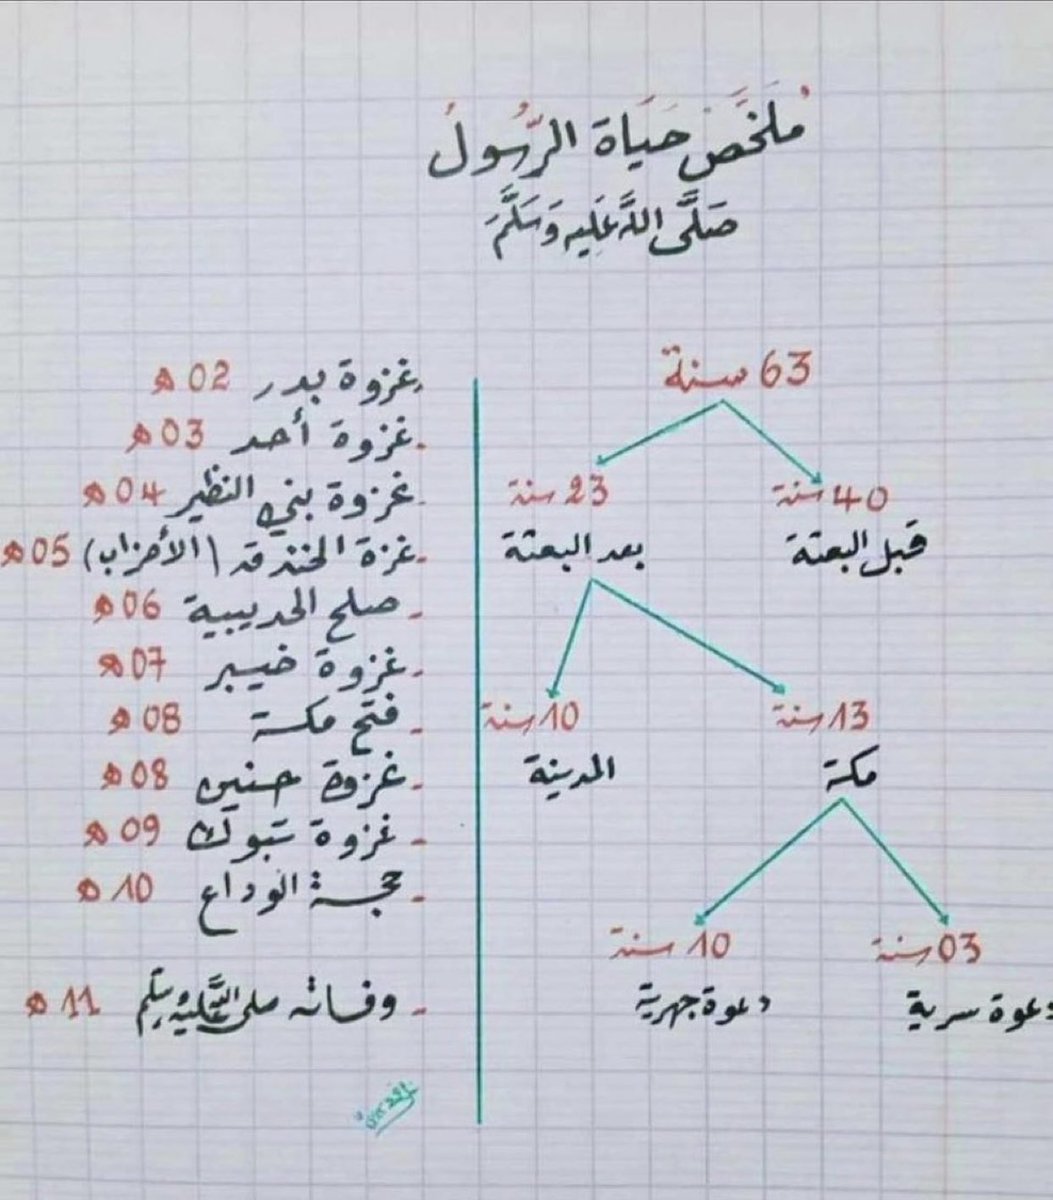 مُلَخَّص حَيَاة الرَّسُولُ
صَلَّى اللَّه عَلَيه وَسَلَّمَ
63 سنة
40 سنة
23 سنة
قبل البعثة
بعد البعثة
13 سنة
10 سنة
مكة
المدينة
03 سنة
10 سنة
دعوة سرية
دعوة جهرية
- غزوة بدر 02 هـ
- غزوة أحد 03 هـ
- غزوة بني النظير 04 هـ
- غزة الخندق (الأحزاب) 05 هـ
- صلح الحديبية 06 هـ
- غزوة خيبر 07 هـ
- فتح مكة 08 هـ
- غزوة حنين 08 هـ
- غزوة تبوك 09 هـ
- حجة الوداع 10 هـ
- وفاته صلى الله عليه وسلم 11 هـ